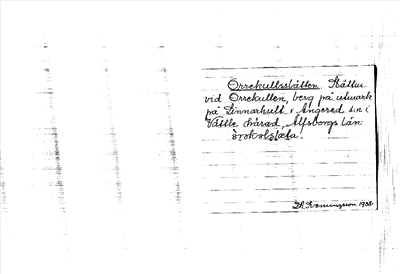 Orrekullsslätten. Slätten
vid Orrekullen, berg på utmark
på Linnarhult i Angered sn i
Vättle härad, Älfsborgs län.
1938